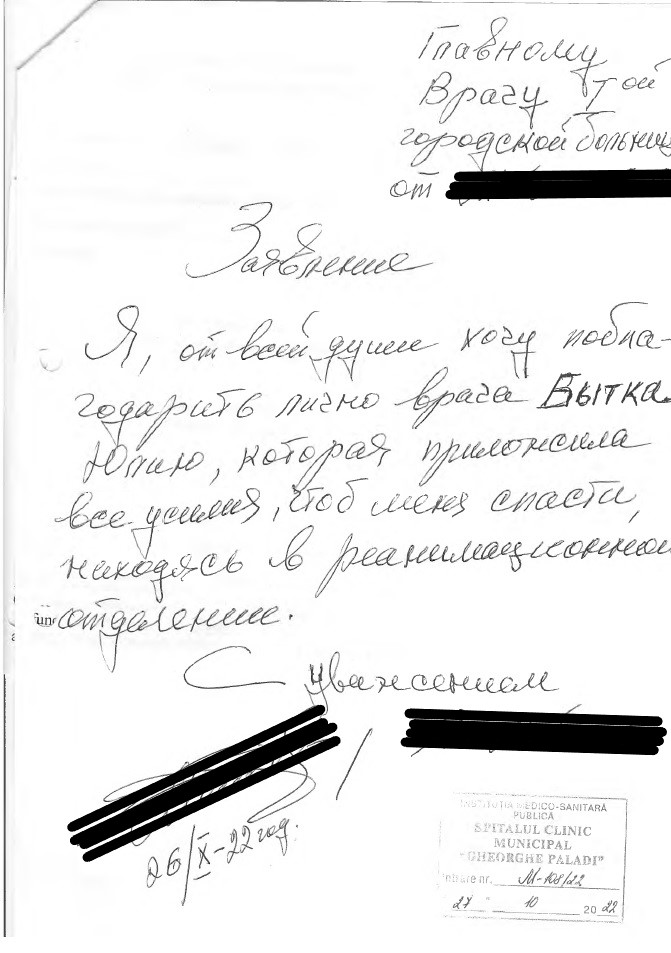 Главному
Врачу 1 той
городской больниц
от
Заявление
Я, от всей души хочу побла-
годарить лично врача Вытка
Юлию, которая приложила
все усилия, чтоб меня спасти,
находясь в реанимационной
отделение.
С уважением
26/X-22 год.
INSTITUȚIA MEDICO-SANITARĂ
PUBLICĂ
SPITALUL CLINIC
MUNICIPAL
"GHEORGHE PALADI"
Intrare nr. M-108/22
27 " 10 20 22